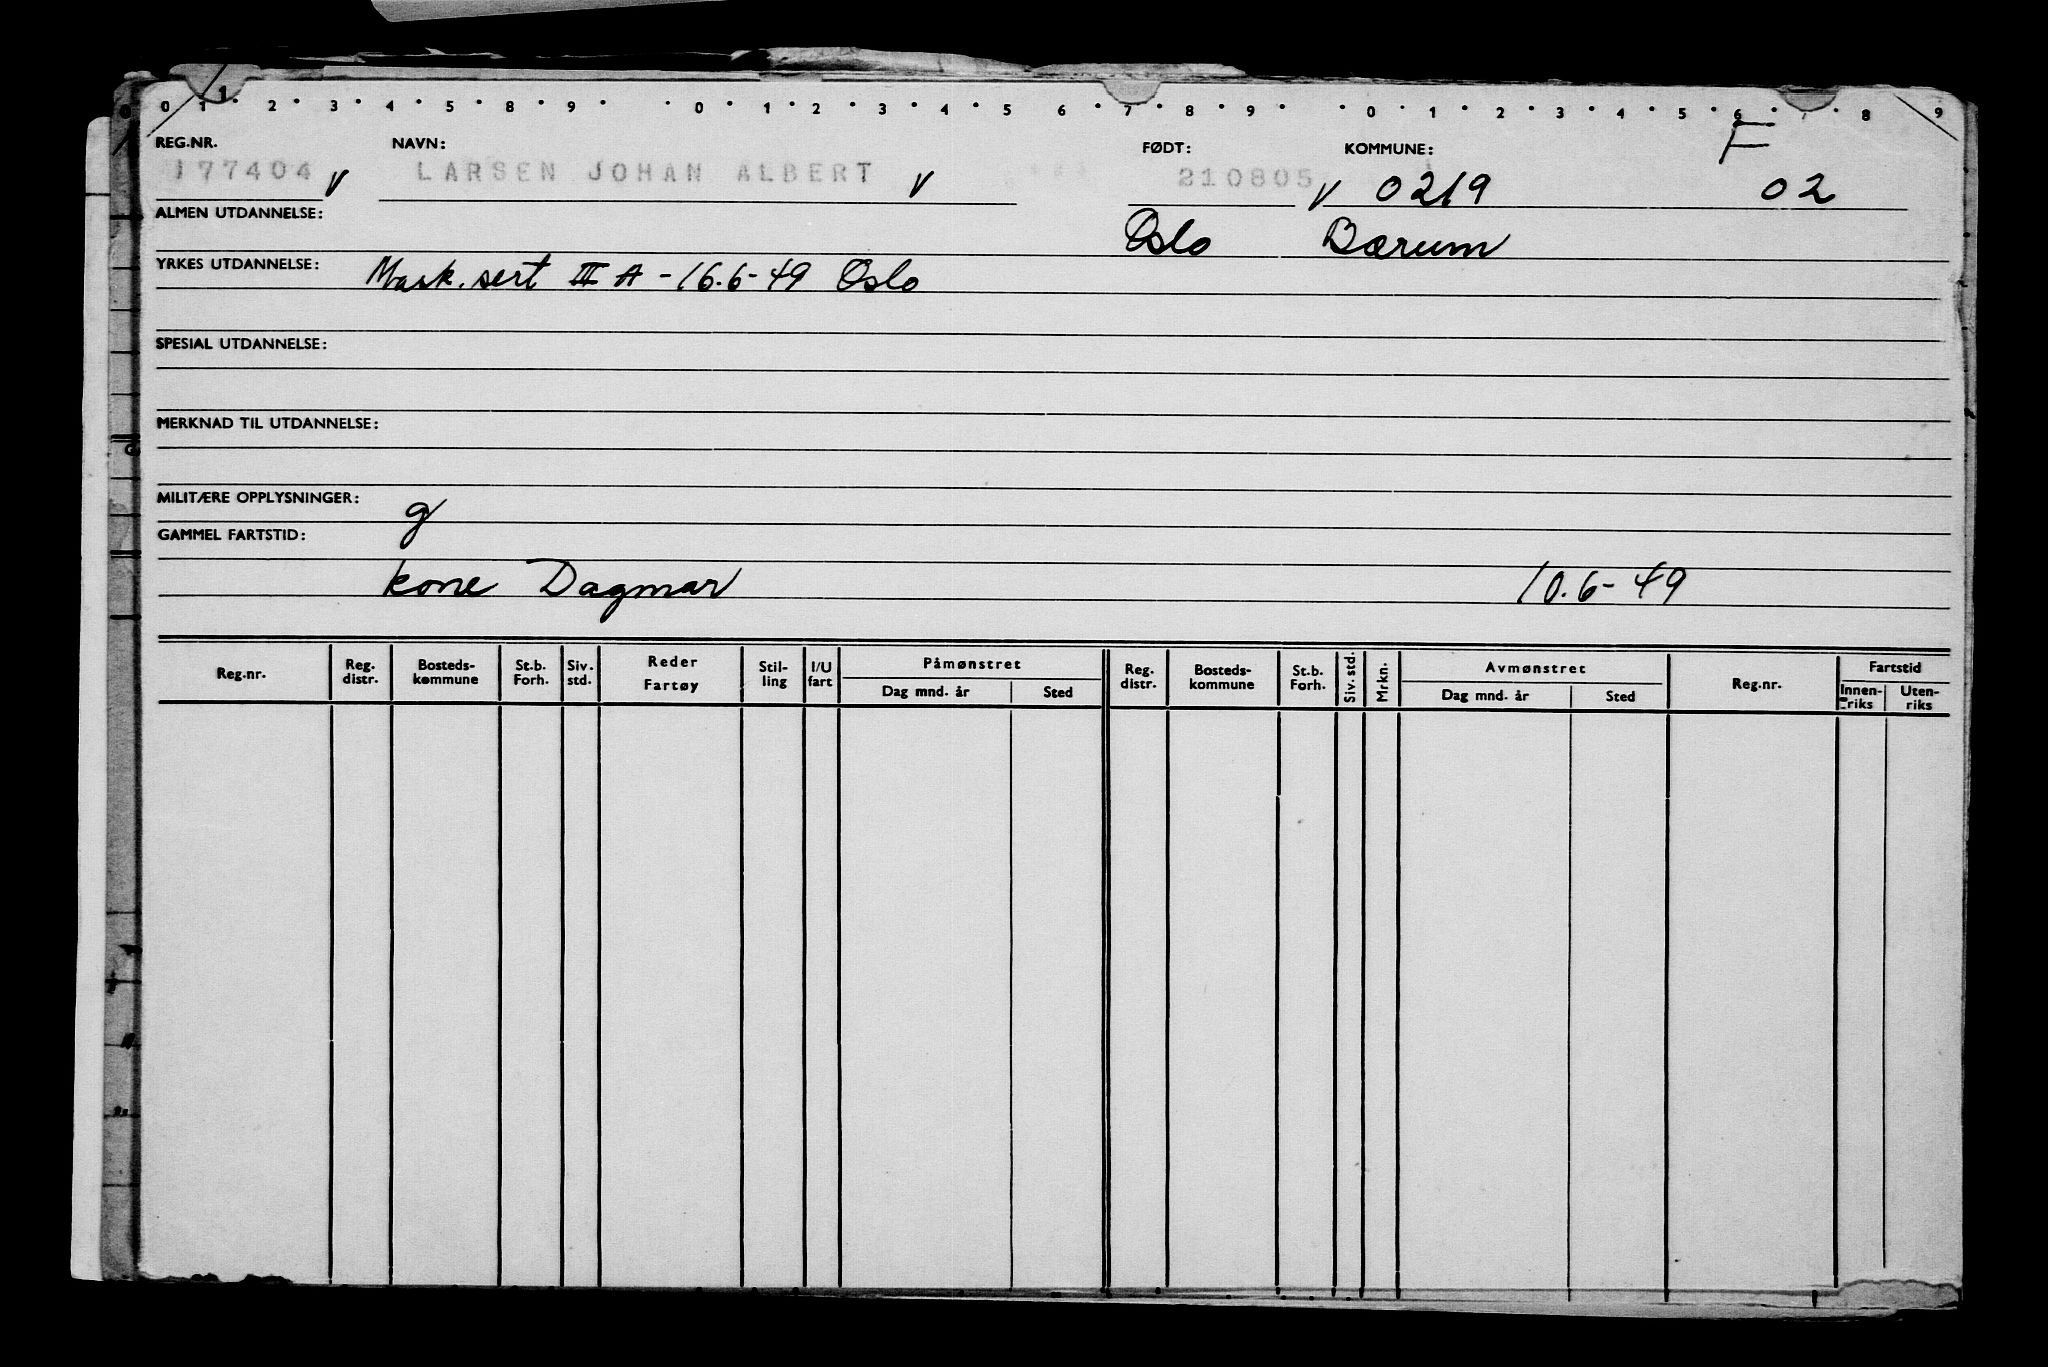 0 1 2 3 4 5 8 9 0 1 2 3 4 5 6 7 8 9 0 1 2 3 4 5 6 8 9
F
REG.NR. NAVN: FØDT: KOMMUNE:
177404 V LARSEN JOHAN ALBERT V 210805 V 0219 02
ALMEN UTDANNELSE: Oslo Bærum
YRKES UTDANNELSE: Mask. sert III A - 16.6-49 Oslo
SPESIAL UTDANNELSE:
MERKNAD TIL UTDANNELSE:
MILITÆRE OPPLYSNINGER: g
GAMMEL FARTSTID:
kone Dagmar 10.6-49
Reg.nr. Reg. distr. Bosteds-kommune St.b. Forh. Siv. std. Reder Fartøy Stil-ling I/U fart Påmønstret Dag mnd. år Sted Reg. distr. Bosteds-kommune St.b. Forh. Siv. std. Mrkn. Avmønstret Dag mnd. år Sted Reg.nr. Fartstid Innen-riks Uten-riks